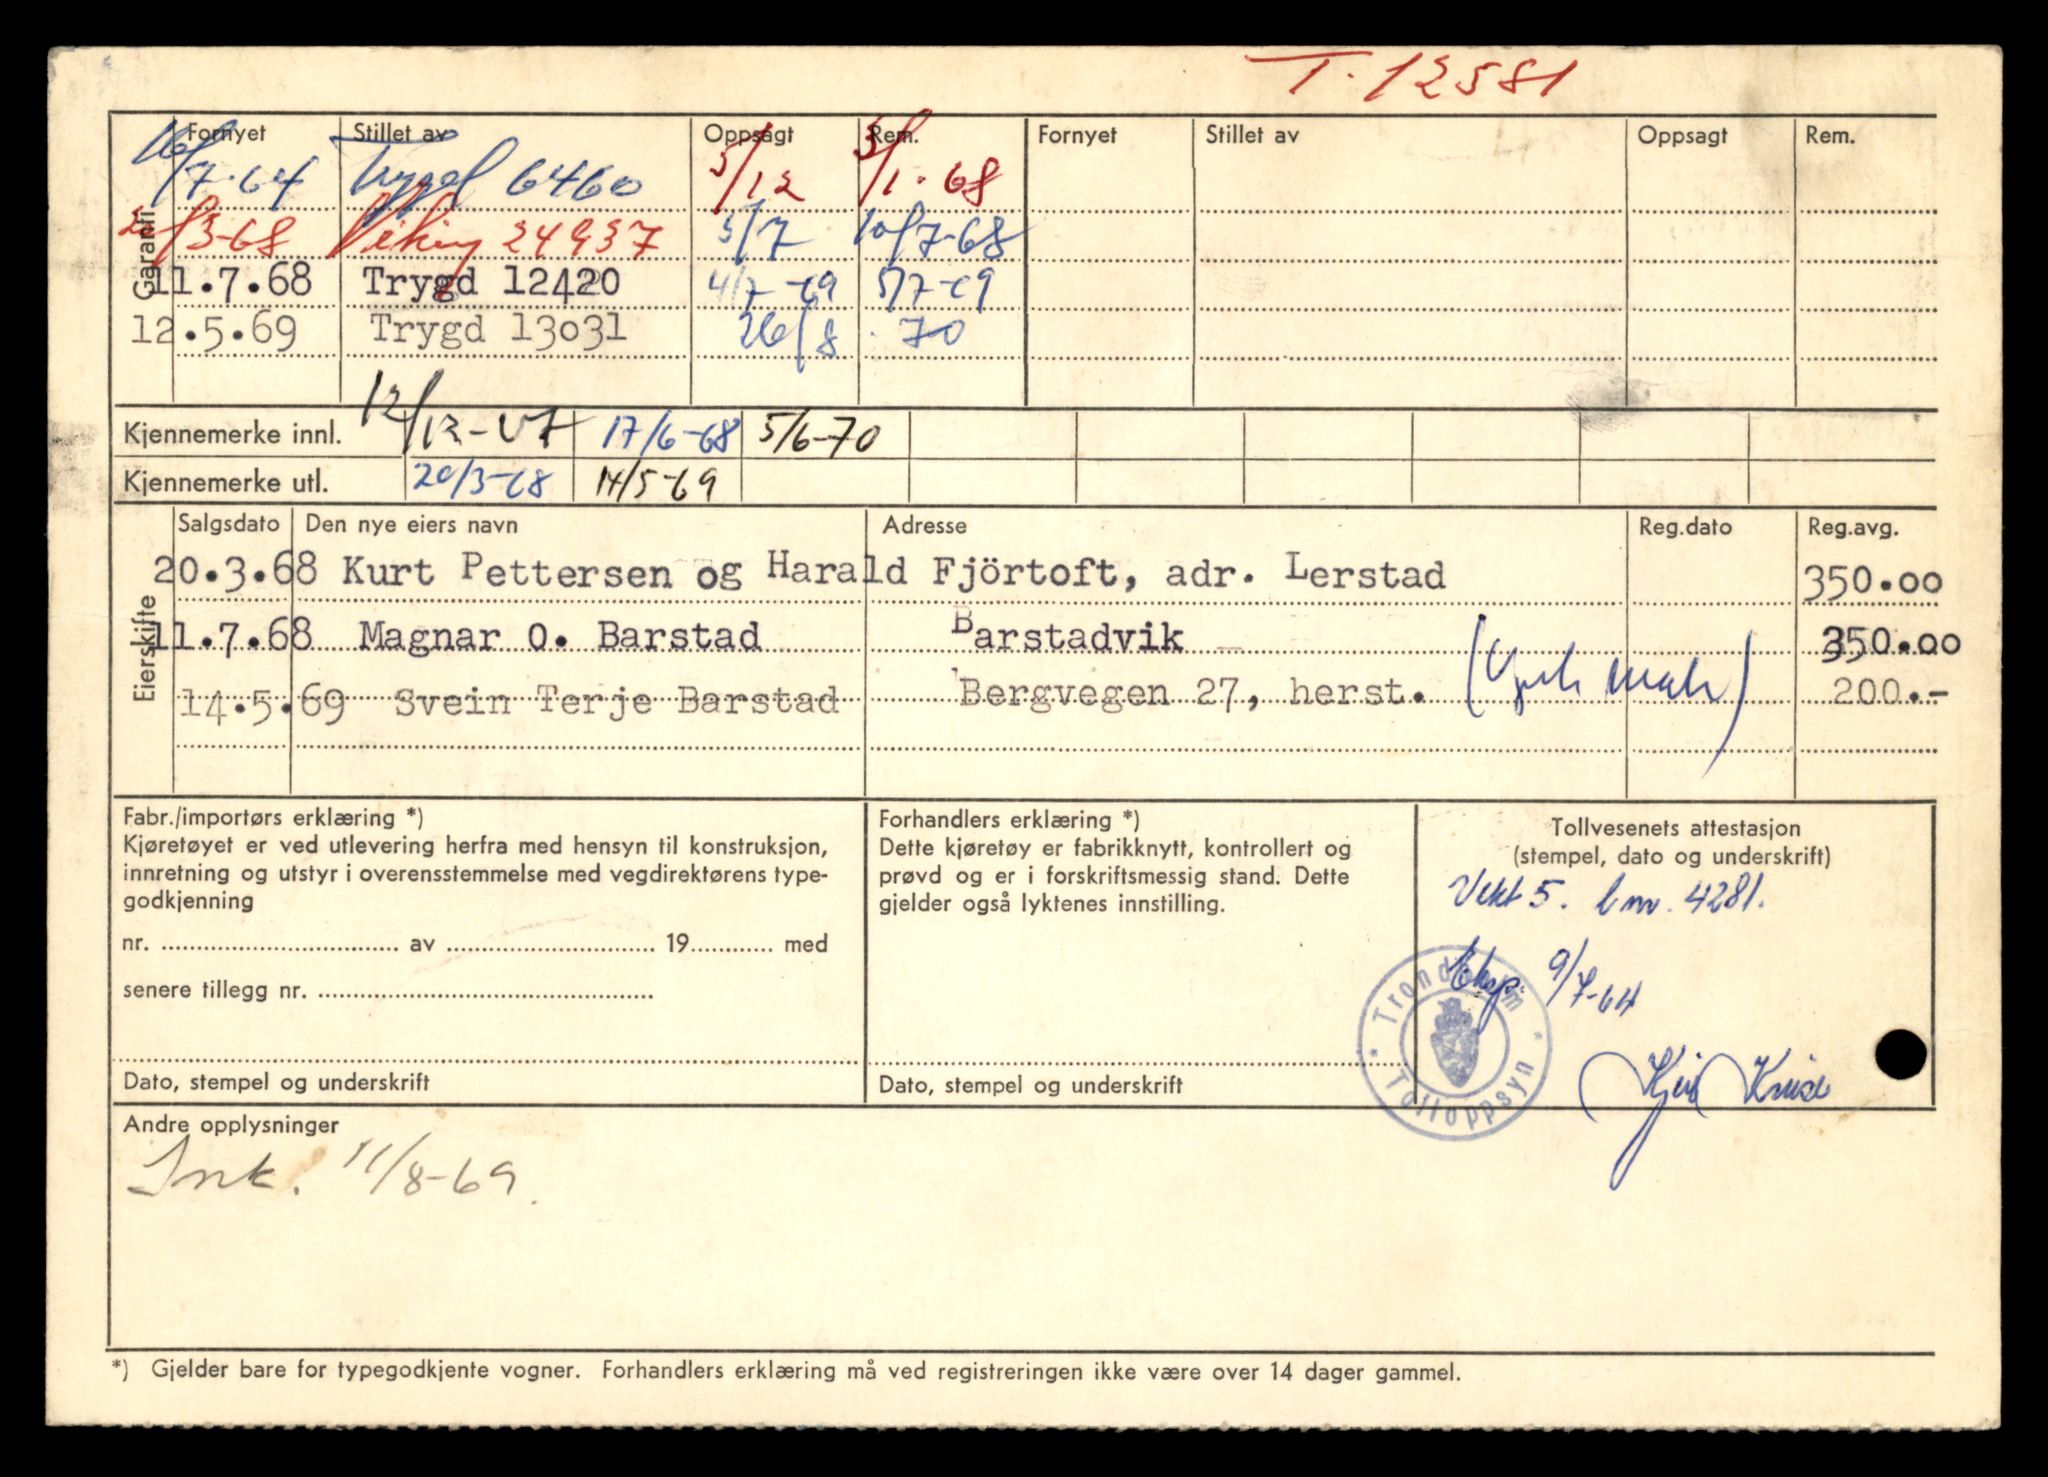 T. 12581
Garanti Fornyet Stillet av Oppsagt Rem. Fornyet Stillet av Oppsagt Rem.
16/7-64 Trygd 6460 5/12 3/1-68
2 /3-68 Viking 24937 5/7 10/7-68
11.7.68 Trygd 12420 4/7-69 5/7-69
12.5.69 Trygd 13031 26/8 70
Kjennemerke innl. 12/12-67 17/6-68 5/6-70
Kjennemerke utl. 20/3-68 14/5-69
Eierskifte Salgsdato Den nye eiers navn Adresse Reg.dato Reg.avg.
20.3.68 Kurt Pettersen og Harald Fjörtoft, adr. Lerstad 350.00
11.7.68 Magnar O. Barstad Barstadvik 350.00
14.5.69 Svein Terje Barstad Bergvegen 27, herst. 200.-
Fabr./importørs erklæring *)
Kjøretøyet er ved utlevering herfra med hensyn til konstruksjon,
innretning og utstyr i overensstemmelse med vegdirektørens type-
godkjenning
nr. ........ av ........ 19........ med
senere tillegg nr. ........
Dato, stempel og underskrift
Forhandlers erklæring *)
Dette kjøretøy er fabrikknytt, kontrollert og
prøvd og er i forskriftsmessig stand. Dette
gjelder også lyktenes innstilling.
Dato, stempel og underskrift
Tollvesenets attestasjon
(stempel, dato og underskrift)
Vekt 5. lnr. 4281.
Eksp. 9/7-64
Trondheim Tolloppsyn
Andre opplysninger
Ink. 11/8-69.
*) Gjelder bare for typegodkjente vogner. Forhandlers erklæring må ved registreringen ikke være over 14 dager gammel.